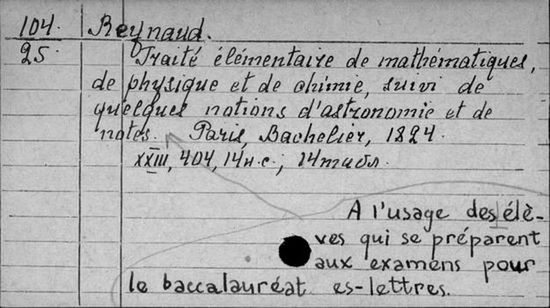 104 Reynaud.
25. Traité élémentaire de mathématiques,
de physique et de chimie, suivi de
quelques notions d'astronomie et de
notes. Paris, Bachelier, 1824.
XXIII, 404, 14 н.с.; 14 табл.
A l'usage des élè-
ves qui se préparent
aux examens pour
le baccalauréat es-lettres.